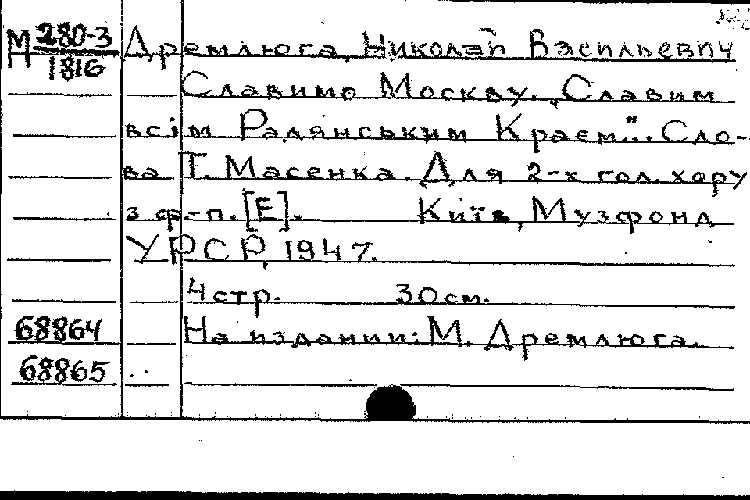 М 280-3 Дремлюга, Николай Васильевич
1816
Славимо Москву. „Славим
всім Радянським Краєм"... Сло-
ва Т. Масенка. Для 2-х гол. хору
з ф-п. [Е]. Київ, Музфонд
УРСР, 1947.
4 стр. 30 см.
68864 На издании: М. Дремлюга.
68865